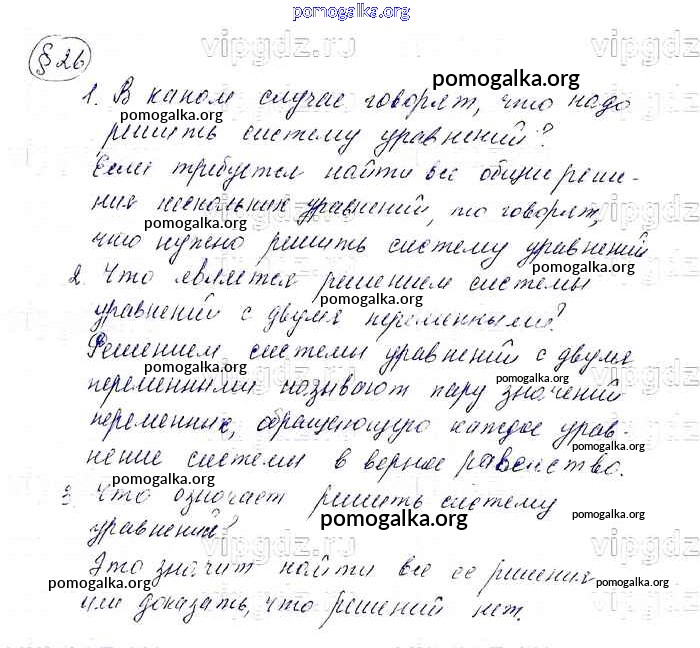 pomogalka.org
§ 26
vipgdz.ru vipgdz.ru
pomogalka.org
1. В каком случае говорят, что надо
решить систему уравнений?
pomogalka.org
Если требуется найти все общие реше-
ния нескольких уравнений, то говорят,
pomogalka.org
что нужно решить систему уравнений
pomogalka.org
2. Что является решением системы
pomogalka.org
уравнений с двумя переменными?
Решением системы уравнений с двумя
pomogalka.org
переменными называют пару значений
переменных, обращающую каждое урав-
нение системы в верное равенство.
pomogalka.org
3. Что означает решить систему
pomogalka.org
уравнений?
pomogalka.org
Это значит найти все ее решения
pomogalka.org pomogalka.org
или доказать, что решений нет.